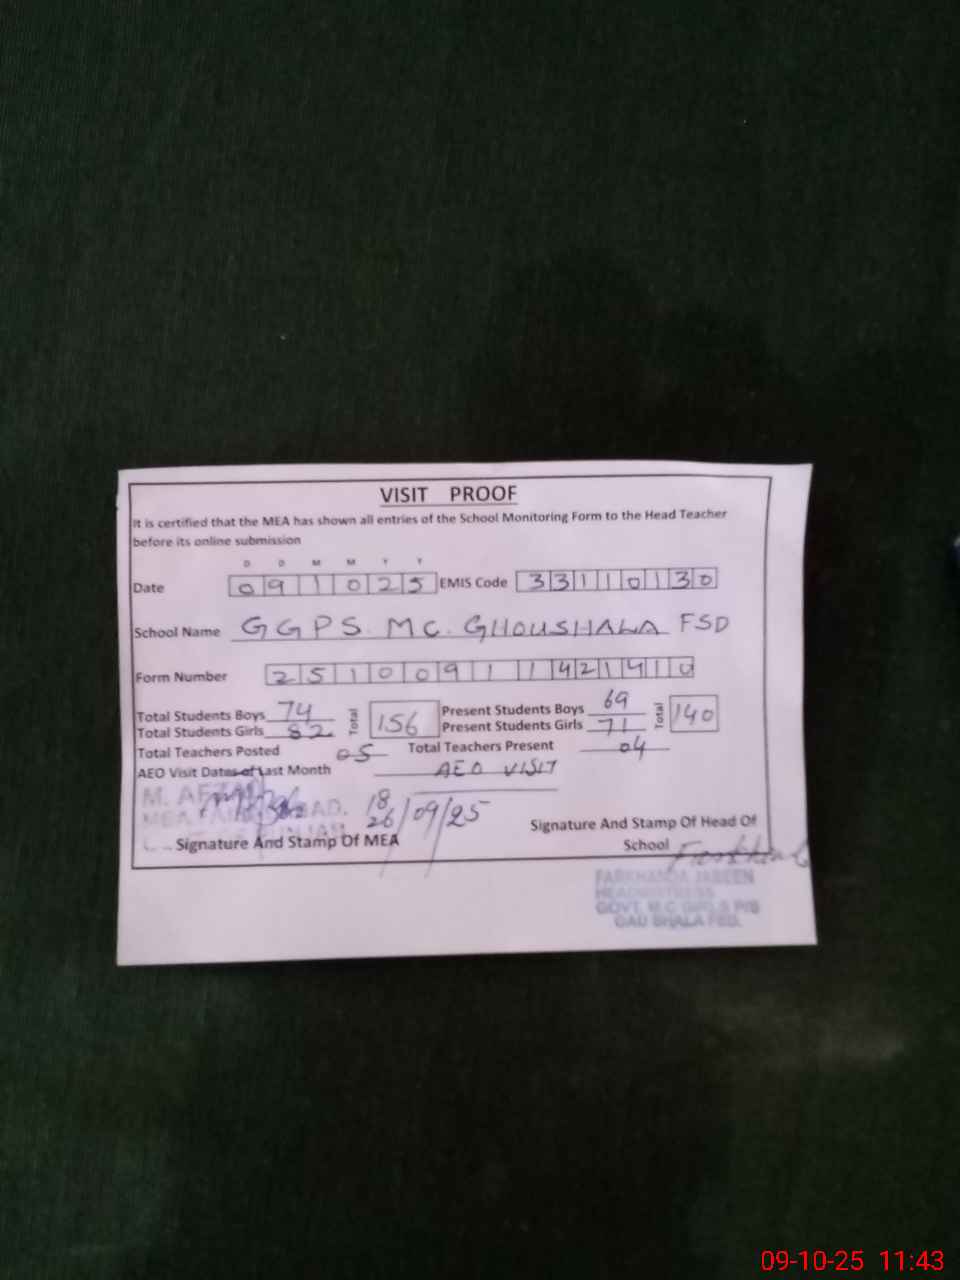 VISIT PROOF
It is certified that the MEA has shown all entries of the School Monitoring Form to the Head Teacher
before its online submission
D D M M Y Y
Date 091025 EMIS Code 33110130
School Name GGPS. MC. GHOUSHALA FSD
Form Number 25100911421410
Total Students Boys 74 Total 156 Present Students Boys 69 Total 140
Total Students Girls 82 Present Students Girls 71
Total Teachers Posted 05 Total Teachers Present 04
AEO Visit Dates of Last Month AEO VISIT
18
26/09/25
Signature And Stamp Of MEA
Signature And Stamp Of Head Of
School
FARKHANDA JABEEN
HEADMISTRESS
GOVT. M.C GIRLS P/S
GAU SHALA FSD.
09-10-25 11:43